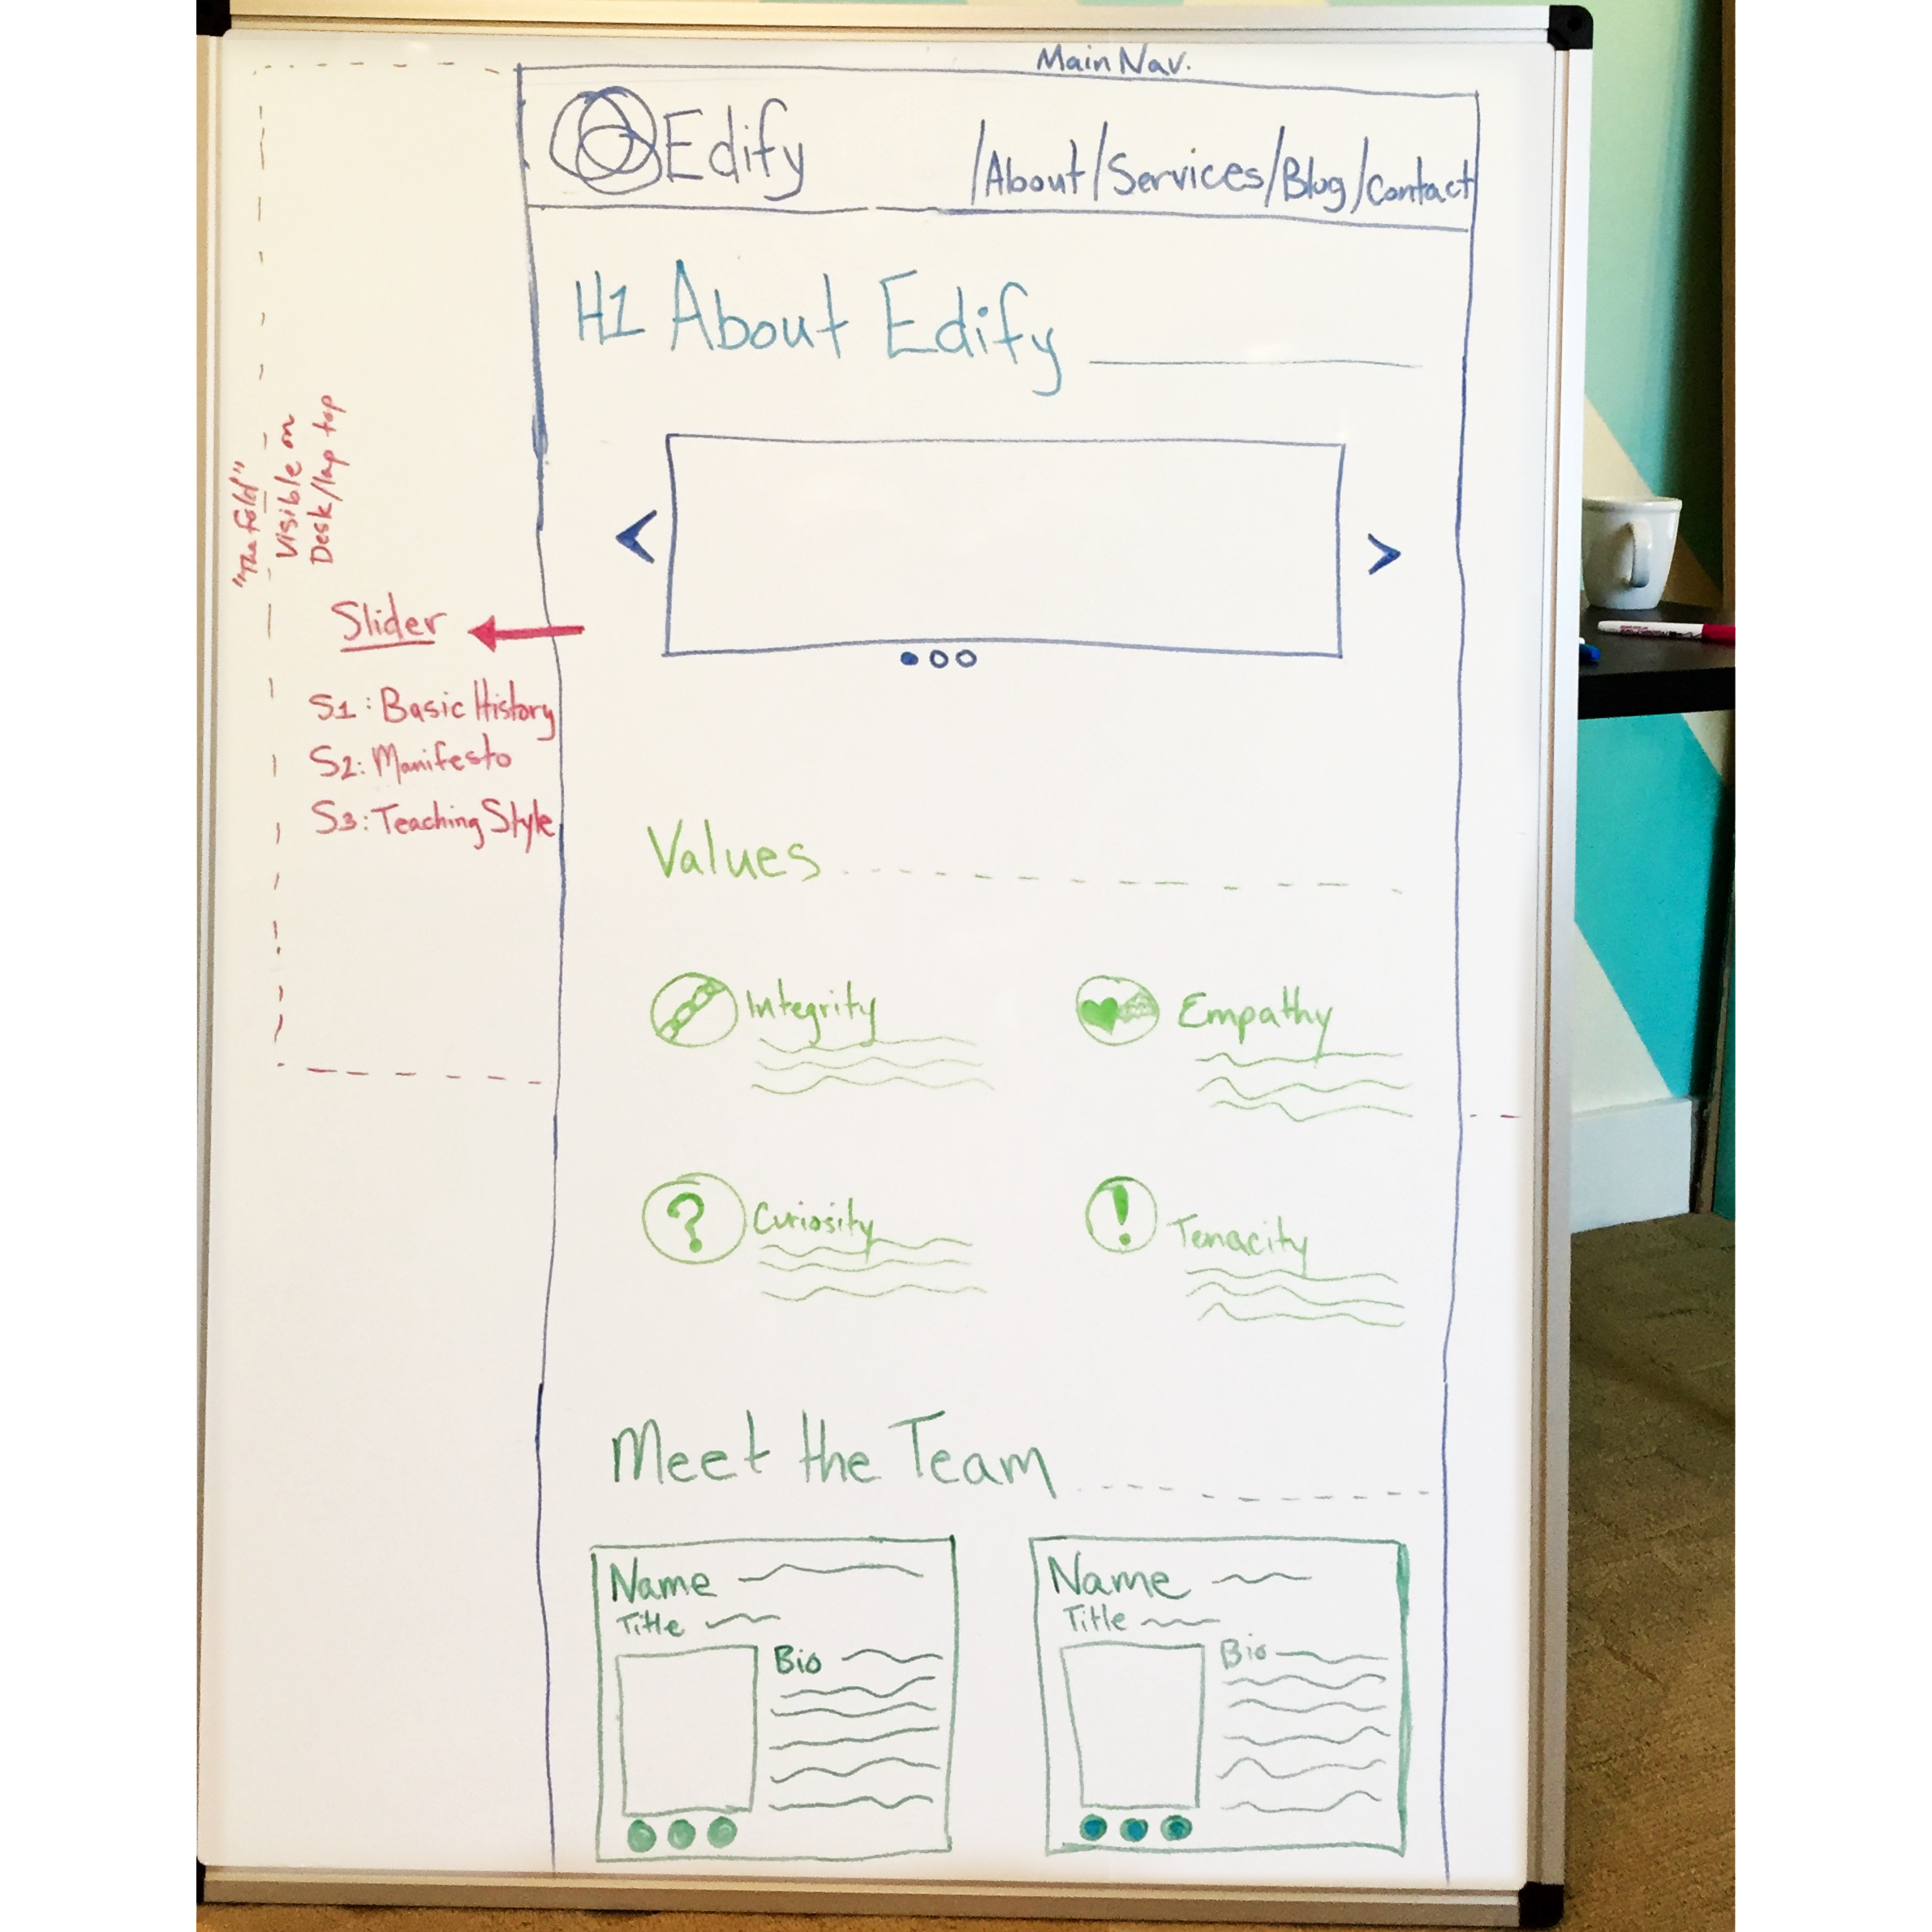 Main Nav.
Edify
/About/Services/Blog/Contact
H1 About Edify
"The fold"
Visible on
Desk/lap top
Slider
S1: Basic History
S2: Manifesto
S3: Teaching Style
<
>
Values
Integrity
Empathy
?
Curiosity
!
Tenacity
Meet the Team
Name
Title
Bio
Name
Title
Bio